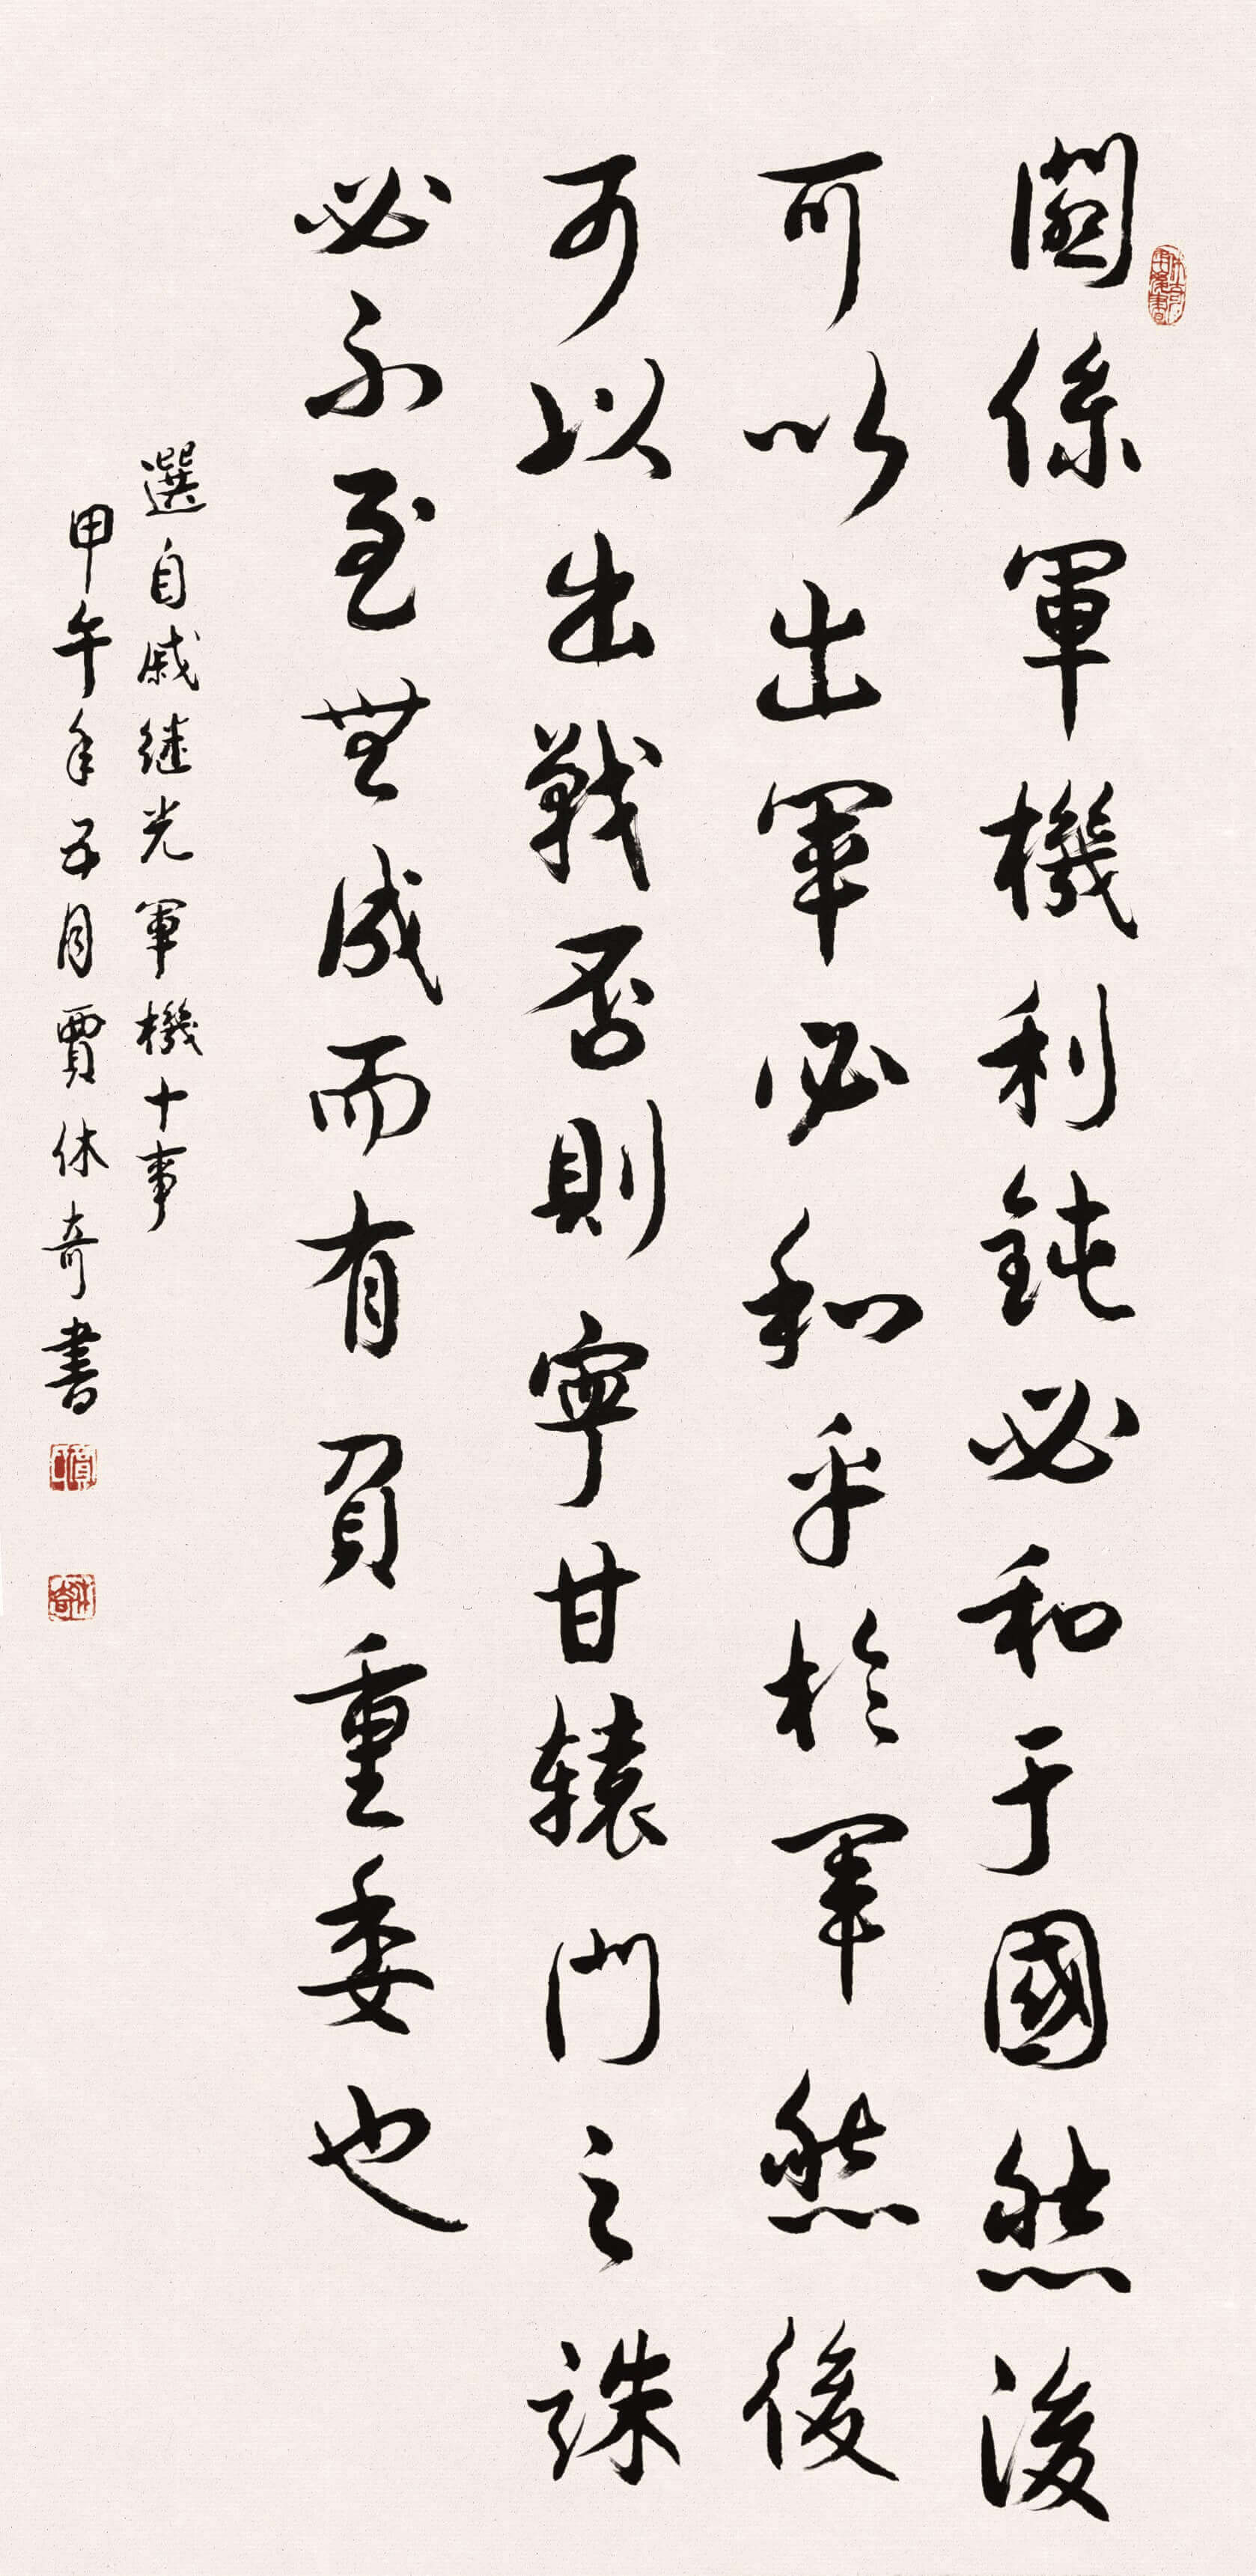 關係軍機利鈍必和于國然後
可以出軍必和乎於軍然後
可以出戰否則寧甘轅門之誅
必不至無成而有負重委也
選自戚继光軍機十事
甲午年五月賈休奇書